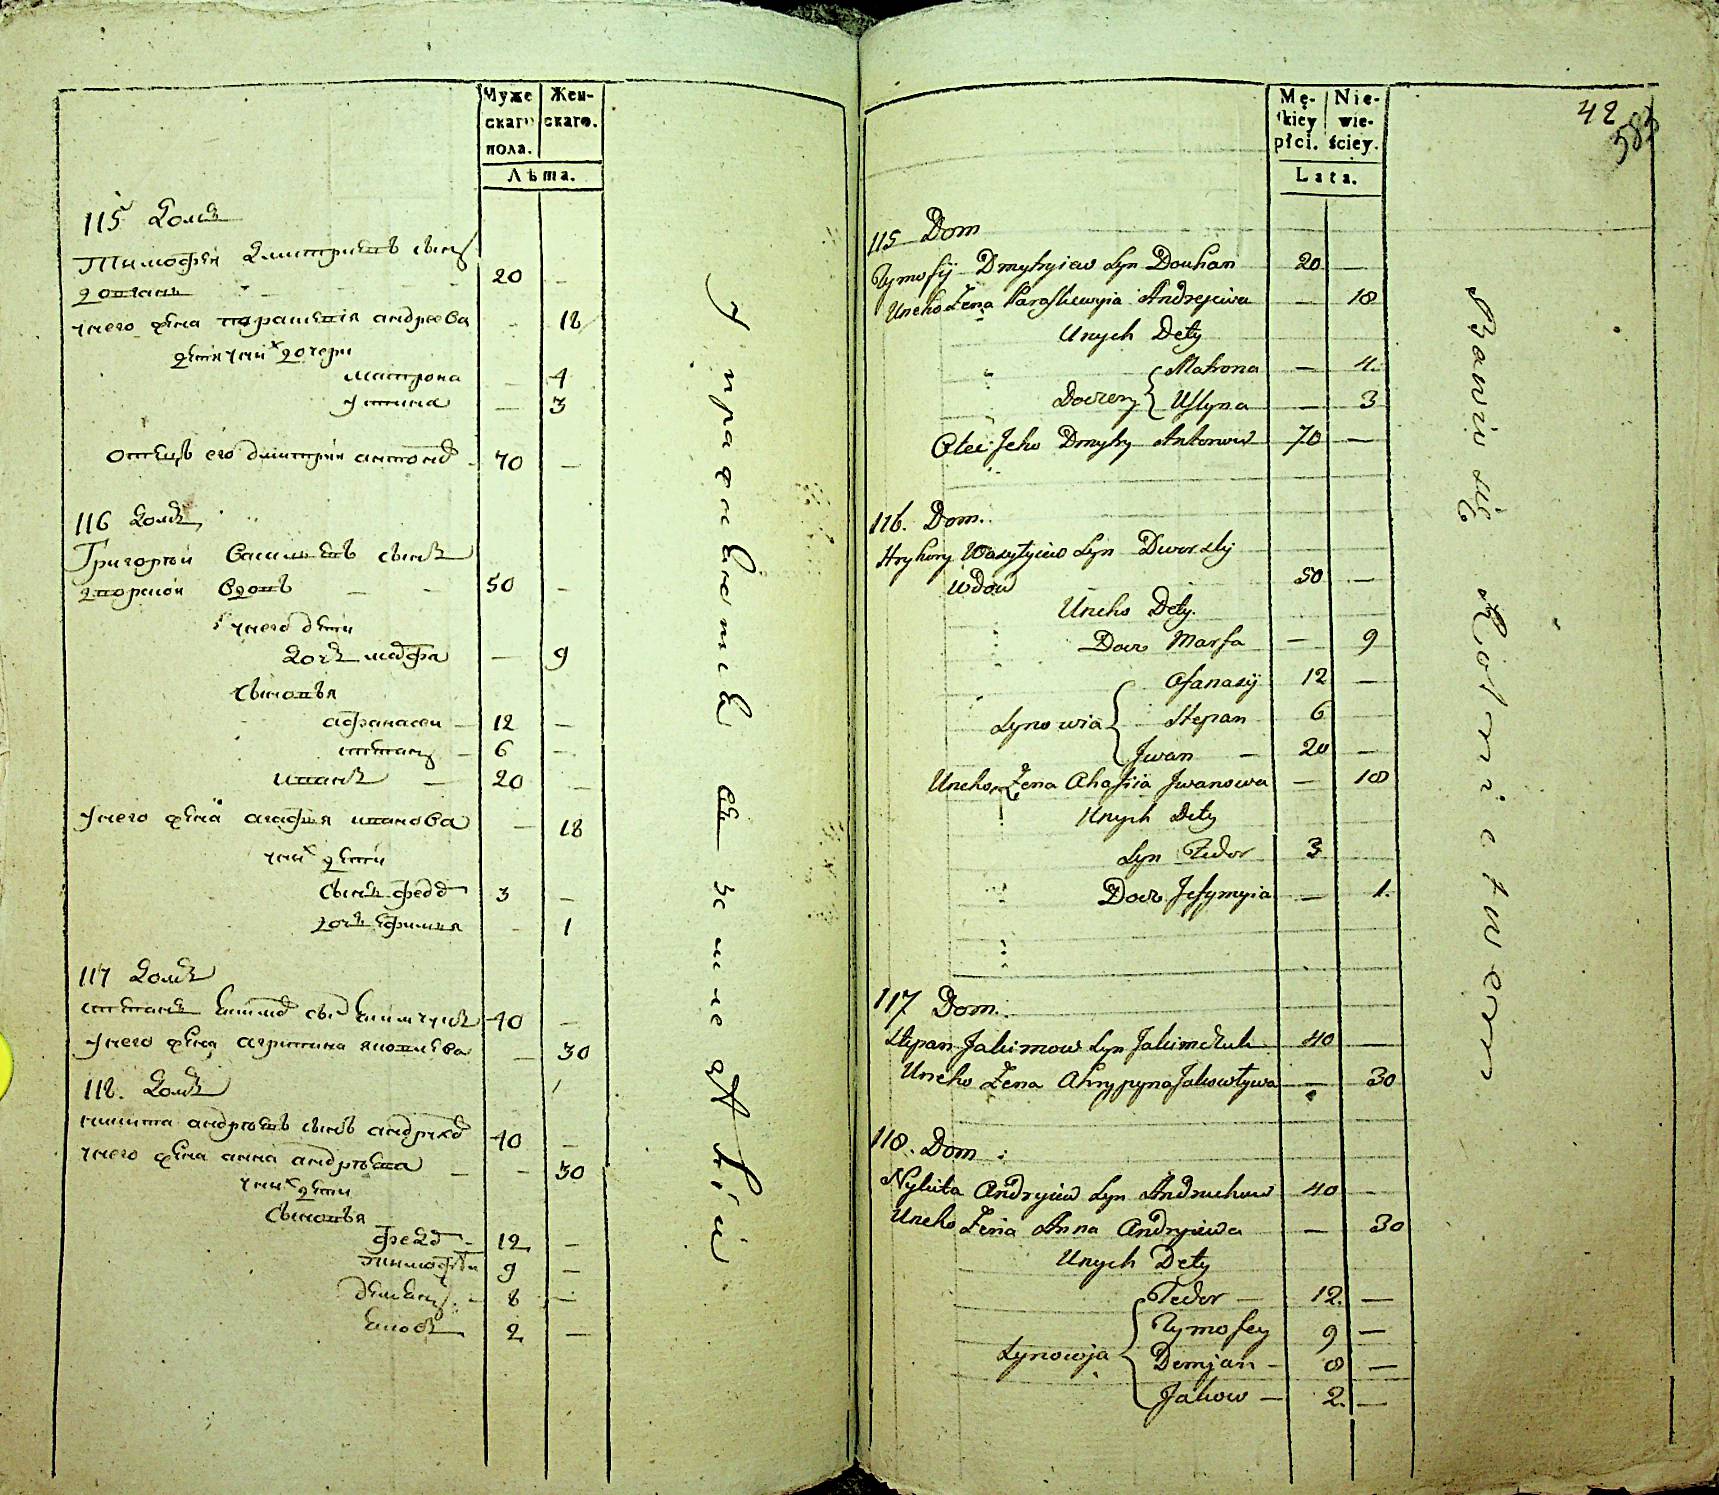 Муже
скаго
пола.
Жен-
скаго.
Лѣта.
115 домъ
Тимофѣй Дмитриевъ сынъ
довганъ 20 —
у него жена парасковия андреева — 18
дети у них дочери
матрона — 4
устина — 3
отецъ его дмитрий антоновъ 70 —
116 домъ
Григорей Васильевъ сынъ
дворской вдовъ 50 —
у него дети
дочь марфа — 9
сыновья
афанасей 12 —
степанъ 6 —
иванъ 20 —
у него жена агафия иванова — 18
у них дети
сынъ федоръ 3 —
дочь ефимия — 1
117 домъ
степанъ екимовъ сынъ екимчукъ 40 —
у него жена агрипина яковлева — 30
118. домъ
никита андреевъ сынъ андрухов 40 —
у него жена анна андреева — 30
у них дети
сыновья
федоръ 12 —
тимофѣй 9 —
демьянъ 8 —
яковъ 2 —
Упражняютца въ
42
583
Mę-
skiéy
płci.
Nie-
wie-
ściey.
Lata.
115 Dom
Tymofij Dmytryiew Syn Douhan 20 —
Uneho Żena Paraskewyia Andrejewa — 18
Unych Dety
Matrona — 4.
Doczery { Ustyna — 3
Otec Jeho Dmytry Antonow 70 —
116. Dom.
Hryhory Wasyłyiew Syn Dworsky
wdow 50 —
Uneho Dety.
Docz Marfa — 9
Ofanasij 12 —
Synowia { Stepan 6
Jwan — 20 —
Uneho Żena Ahafiia Jwanowa — 18
Unych Dety
Syn Fedor 3
Docz Jefymyia — 1.
117 Dom.
Stepan Jakimow Syn Jakimczuk 40 —
Uneho Żena Ahrypyna Jakowływa — 30
118. Dom.
Nykita Andryiew Syn Andruchow 40 —
Uneho Żena Anna Andryiewa — 30
Unych Dety
Fedor — 12. —
Tymofey 9 —
Synowja { Demjan — 8 —
Jakow — 2. —
Bawią się Rolnictwem